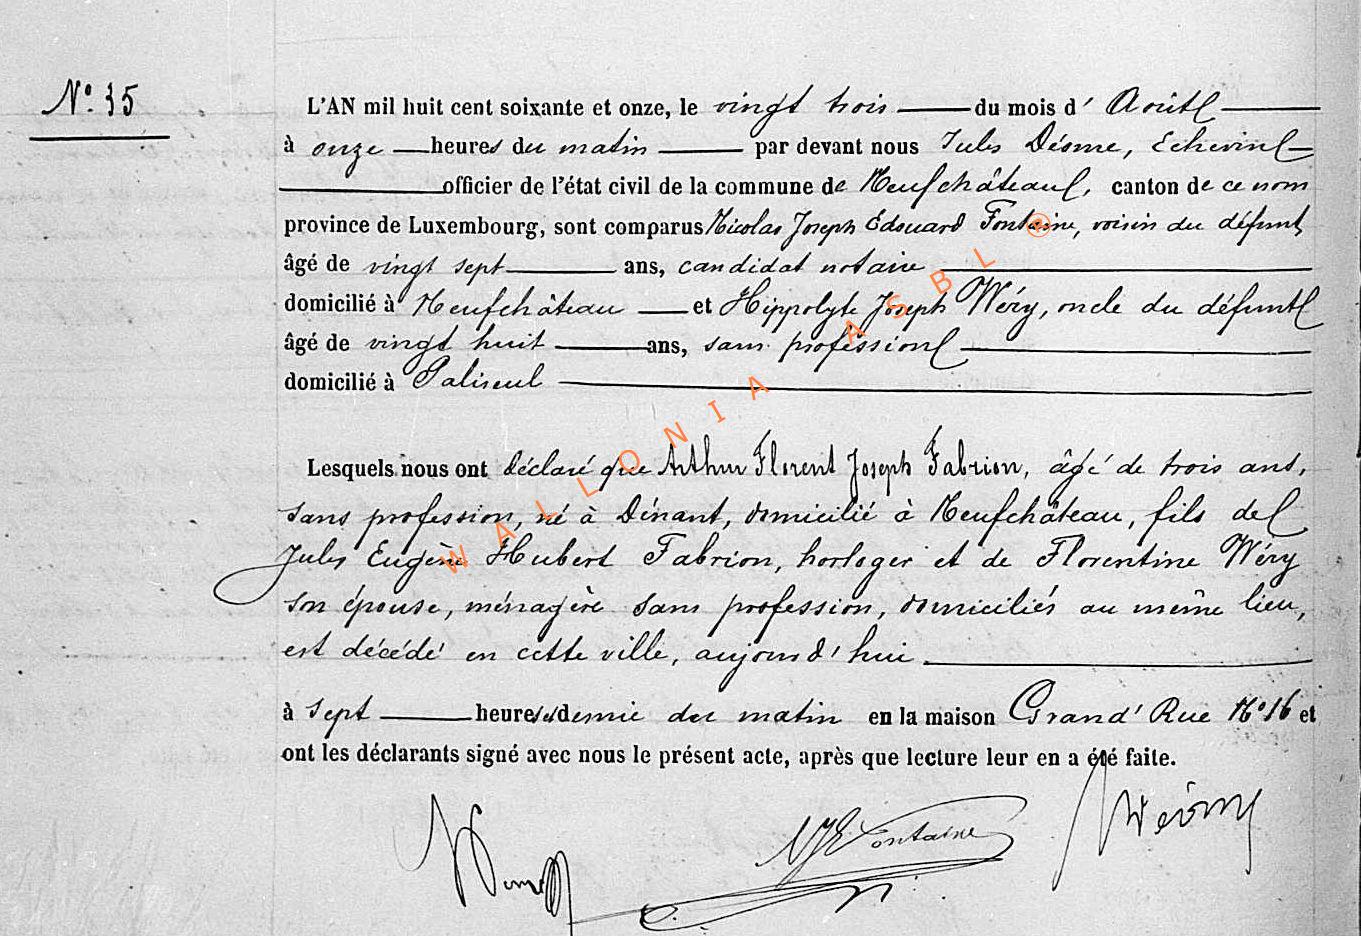 N° 35
L'AN mil huit cent soixante et onze, le vingt trois du mois d'Août
à onze heures du matin par devant nous Jules Désme, Echevin
officier de l'état civil de la commune de Neufchâteau, canton de ce nom
province de Luxembourg, sont comparus Nicolas Joseph Edouard Fontaine, voisin du défunt,
âgé de vingt sept ans, candidat notaire
domicilié à Neufchâteau et Hippolyte Joseph Wéry, oncle du défunt
âgé de vingt huit ans, sans profession
domicilié à Paliseul
Lesquels nous ont déclaré que Arthur Florent Joseph Fabrion, âgé de trois ans,
sans profession, né à Dinant, domicilié à Neufchâteau, fils de
Jules Eugène Hubert Fabrion, horloger et de Florentine Wéry
son épouse, ménagère sans profession, domiciliés au même lieu,
est décédé en cette ville, aujourd'hui
à sept heures demie du matin en la maison Grand'Rue N° 16 et
ont les déclarants signé avec nous le présent acte, après que lecture leur en a été faite.
NJE Fontaine
Wéry
WALLONIA ASBL ®